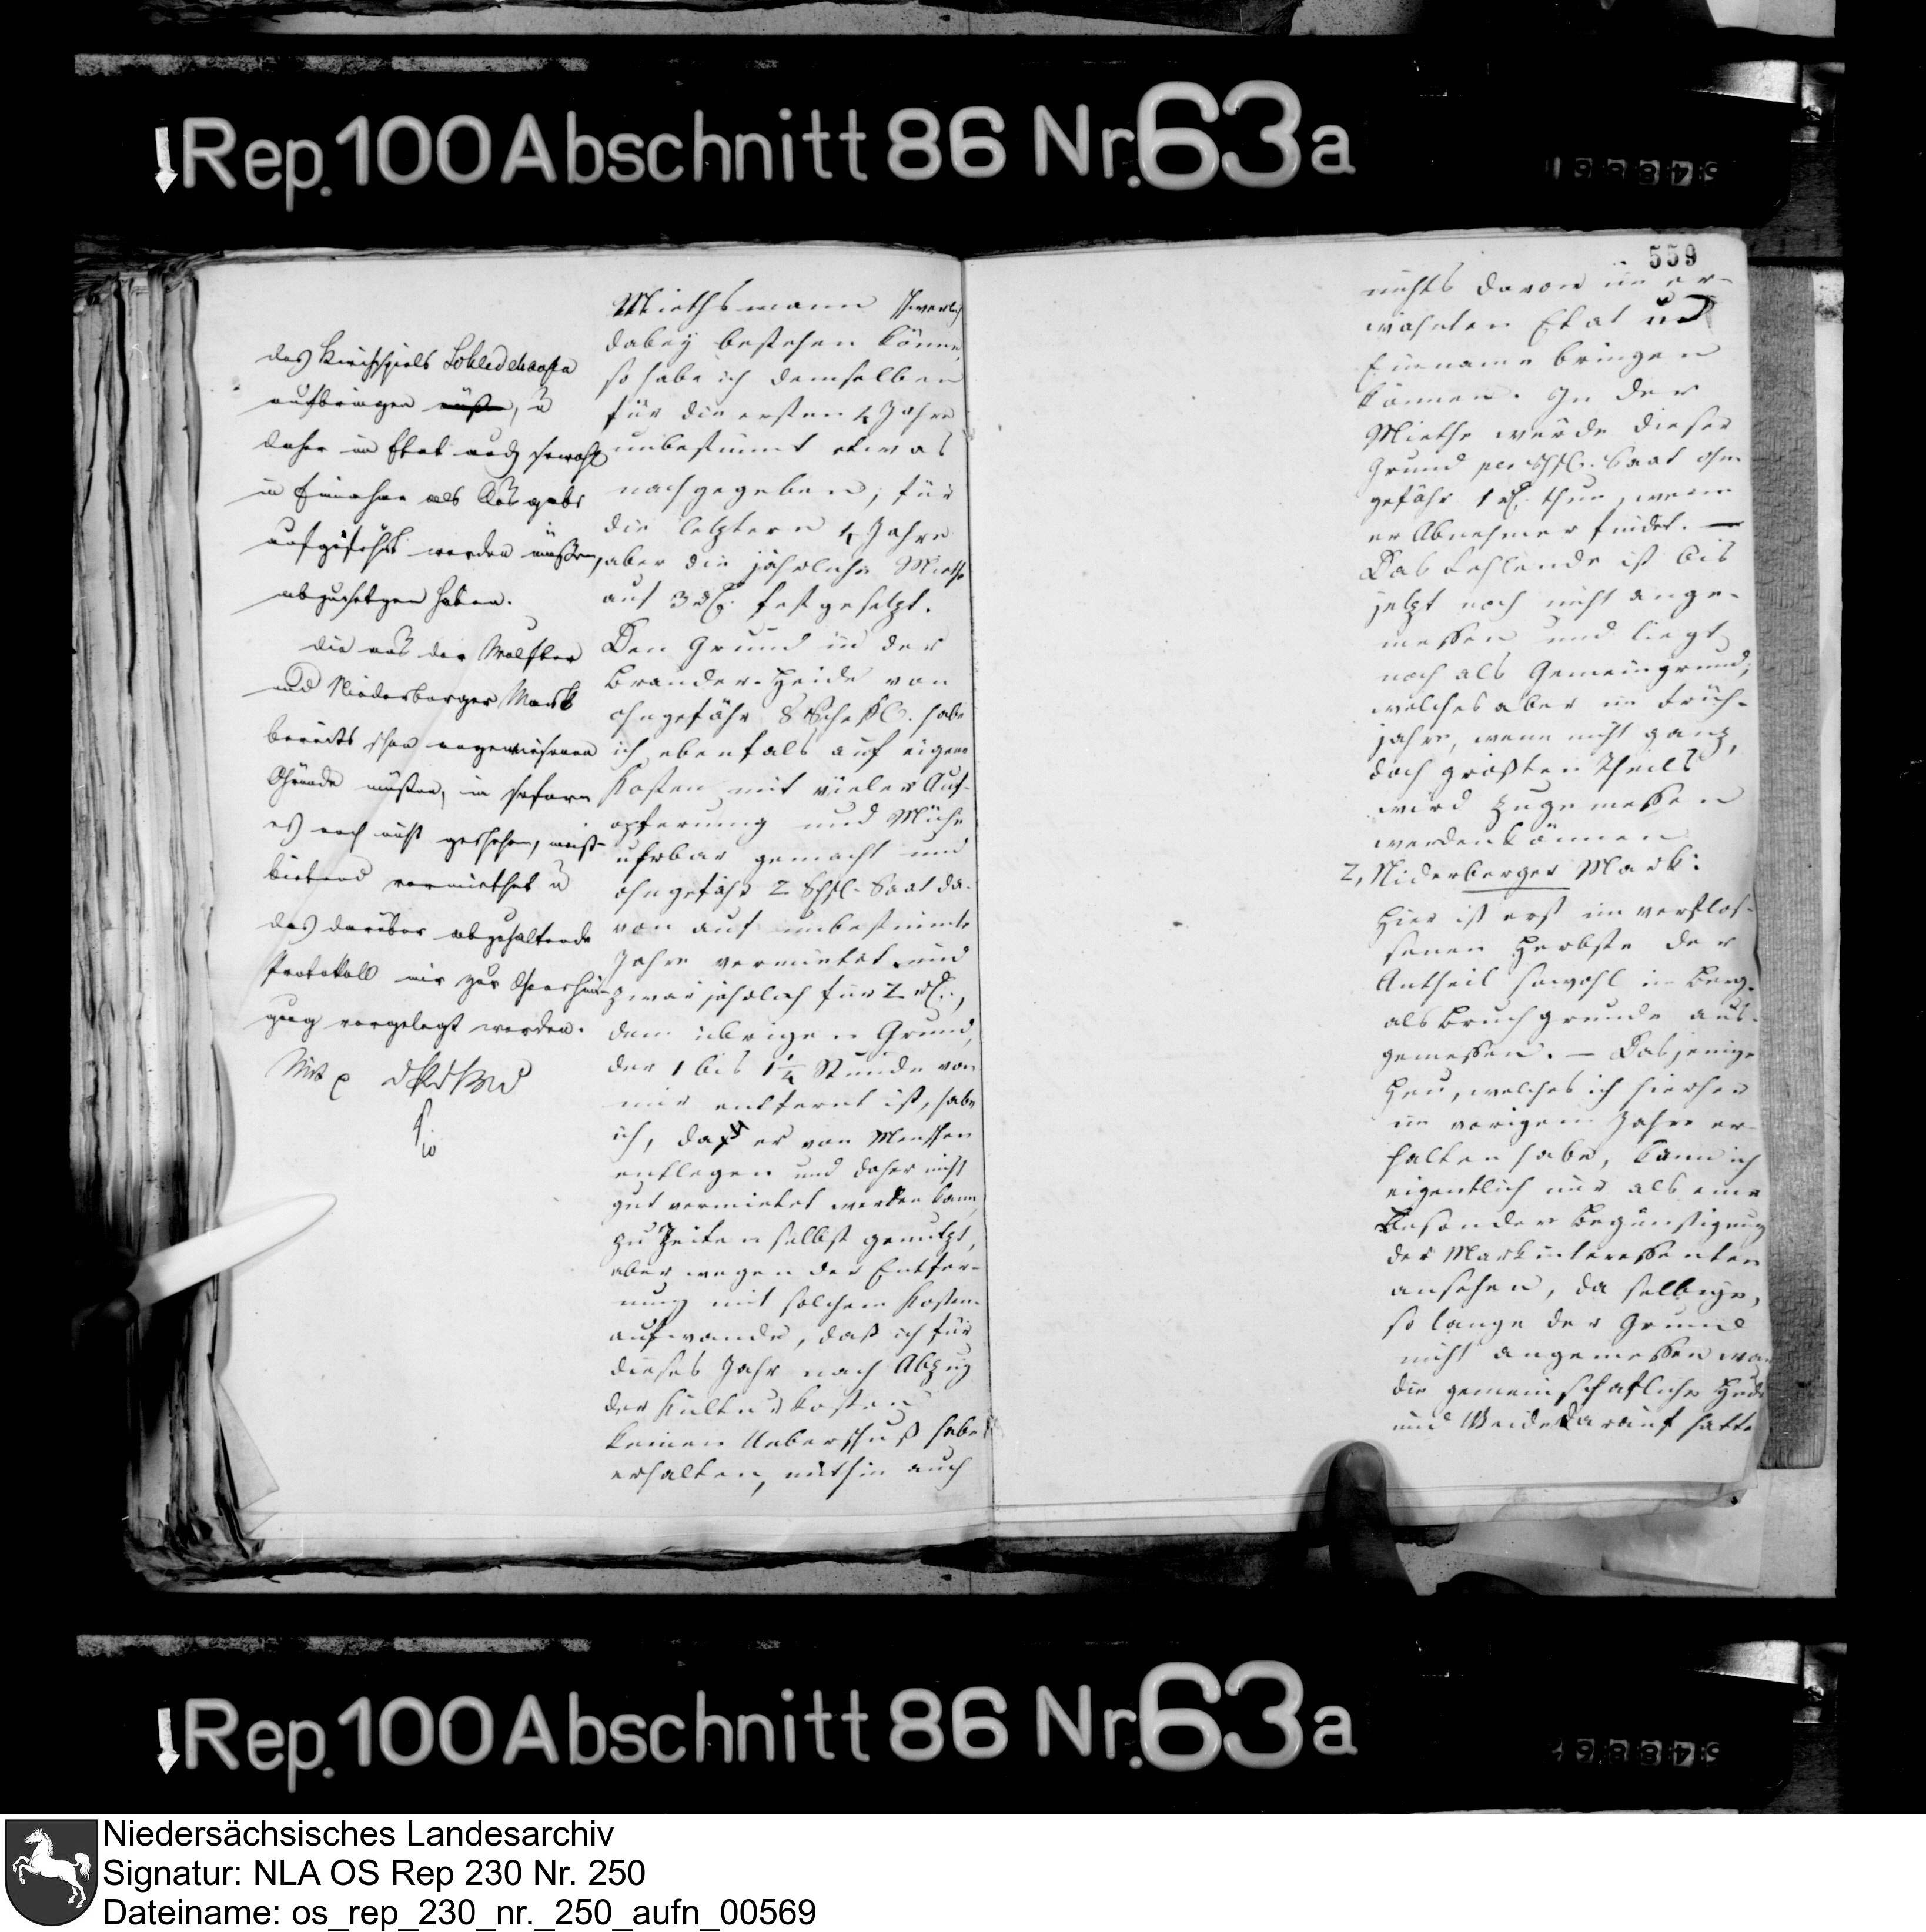 Rep. 100 Abschnitt 86 Nr. 63a
559
des Kirchspiels
aufbringen müßen, u
daher im Etat auch sowohl
in Einnahme als Ausgabe
aufgeführt werden müßen,
haben.
die aus der
und Niederberger Mark
bereits schon angewiesenen
Gründe müßen, in sofern
es noch nicht geschehen, meist-
bietend vermiethet u
das darüber abzuhaltende
Protokoll mir zur Genehmi-
gung vorgelegt werden.
Miethsmann schwerlich
dabey bestehen könne,
so habe ich demselben
für die ersten 4 Jahre
unbestimmt etwas
nachgegeben; für
die letztern 4 Jahre
aber die jährliche Miethe
auf 3 festgesetzt.
Den Grund in der
Brander-Heide von
ohngefähr 8 habe
ich ebenfals auf eigene
Kosten mit vieler Auf-
opferung und Mühe
urbar gemacht und
ohngefähr 2 Schfl. Saat da-
von auf unbestimmte
Jahre vermietet und
zwar jährlich für 2
den übrigen Grund,
der 1 bis 1 1/4 Stunde von
mir entfernt ist, habe
ich, da er von Menschen
entlegen und daher nicht
gut vermietet werden kann,
zu Zeiten selbst genutzt,
aber wegen der Entfer-
nung mit solchem Kosten-
aufwande, daß ich für
dieses Jahr nach Abzug
der Kulturkosten
keinen Ueberschuß habe
erhalten, mithin auch
nichts davon im er-
wähnten Etat
Einname bringen
können. In der
Miethe würde dieser
Grund per Schfl. Saat ohn
gefähr 1 thun, wenn
er Abnehmer findet. —
Das Fehlende ist bis
jetzt noch nicht ange-
messen und liegt
noch als Gemeingrund,
welches aber im Früh-
jahre, wenn nicht ganz,
doch größten Theils
wird zugemessen
werden können
2, Niderberger Mark:
Hier ist erst im verflos-
senen Herbste der
Antheil sowohl in Berg-
als Bruchgrunde aus-
gemessen. — Dasjenige
Heu, welches ich hierher
im vorigen Jahre er-
halten habe, kann ich
eigentlich nur als eine
besondere Begünstigung
der Markinteressenten
ansehen, da selbige,
so lange der Grund
nicht angemessen war
die gemeinschaftliche
und Weide darauf hatte
Rep. 100 Abschnitt 86 Nr. 63a
Niedersächsisches Landesarchiv
Signatur: NLA OS Rep 230 Nr. 250
Dateiname: os_rep_230_nr._250_aufn_00569